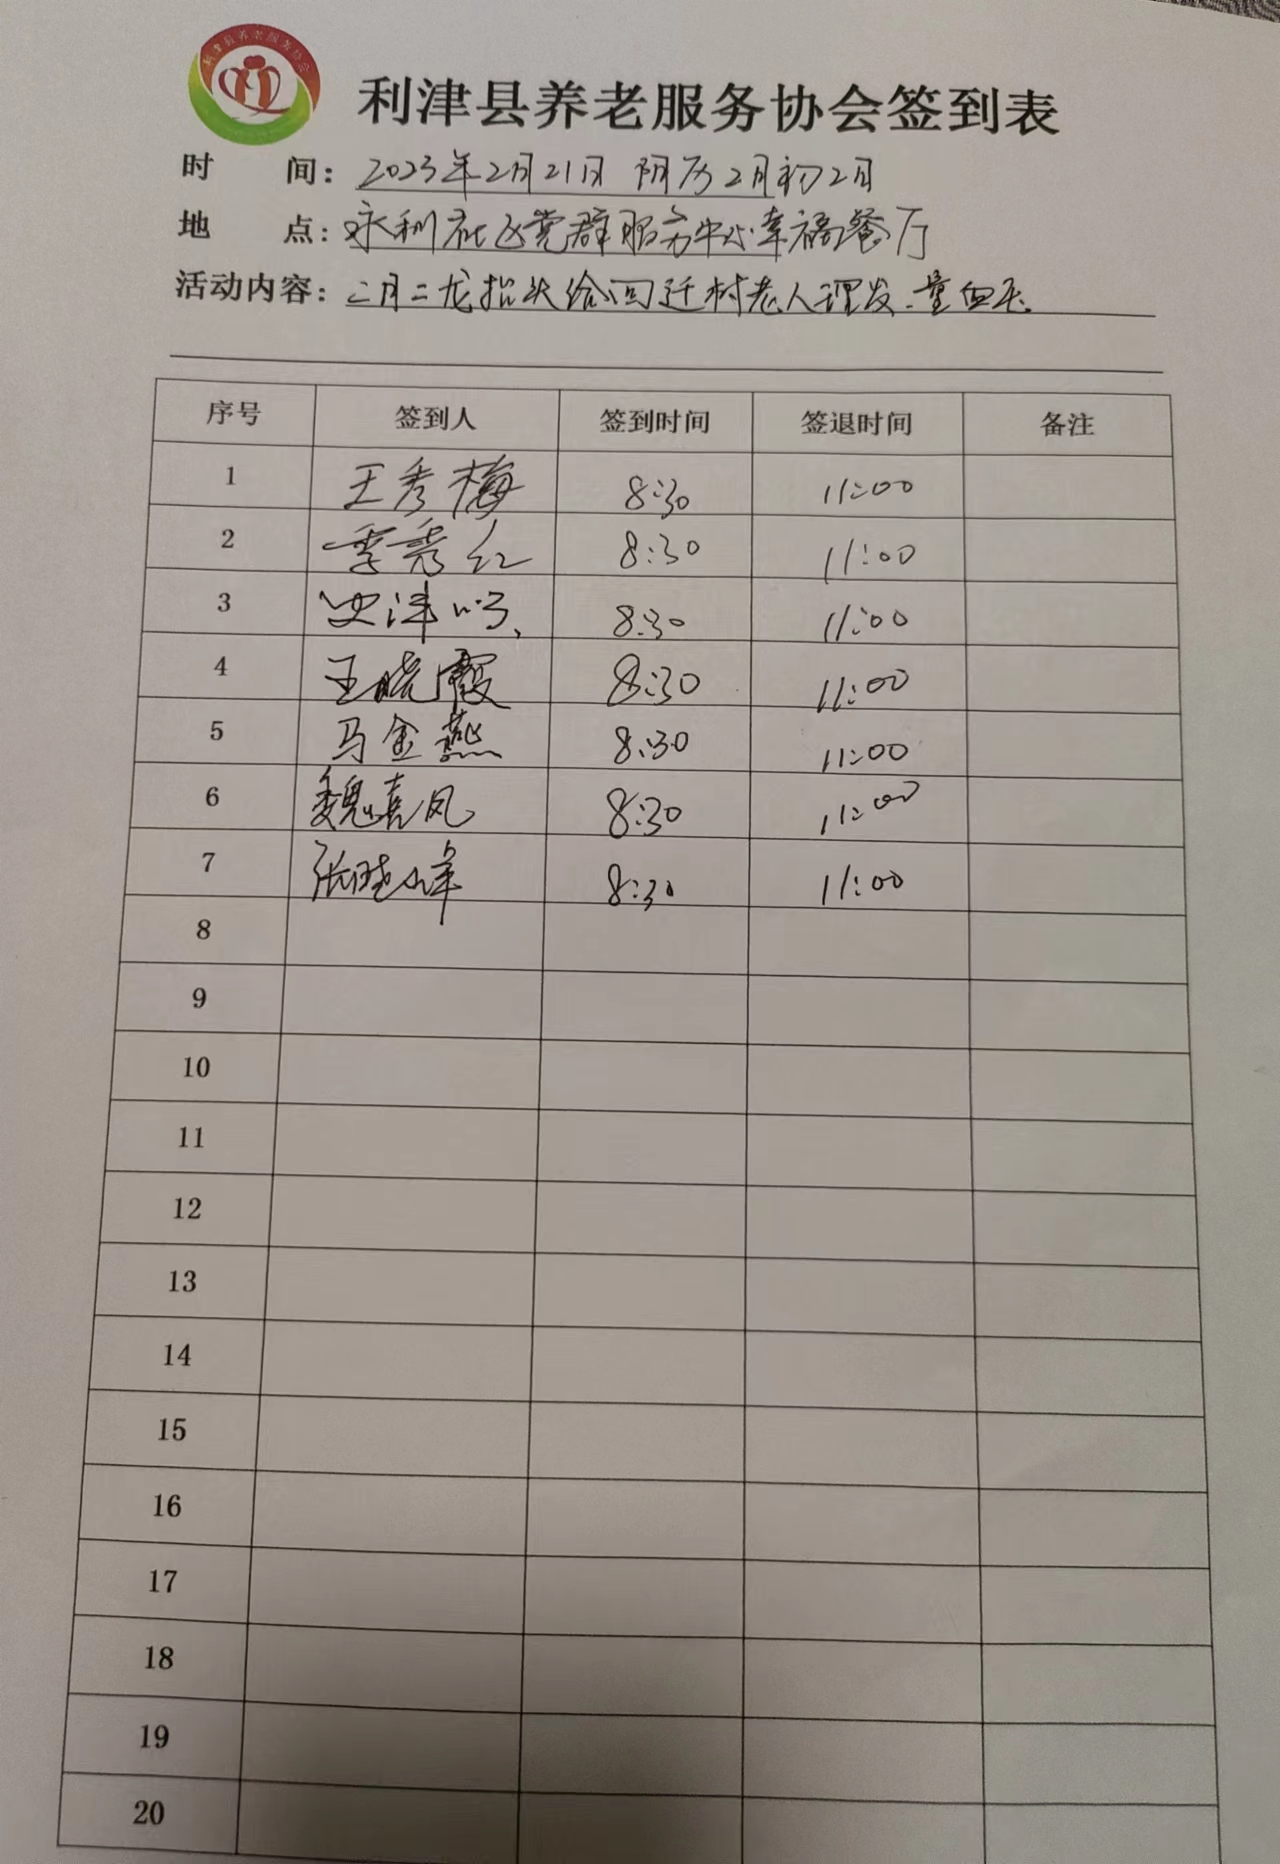 利津县养老服务协会
利津县养老服务协会签到表
时 间: 2023年2月21日 阴历2月初2月
地 点: 永利社区党群服务中心幸福餐厅
活动内容: 二月二龙抬头给回迁村老人理发、量血压
序号 签到人 签到时间 签退时间 备注
1 王秀梅 8:30 11:00
2 季秀红 8:30 11:00
3 史泽 8:30 11:00
4 王晓霞 8:30 11:00
5 马金燕 8:30 11:00
6 魏喜凤 8:30 11:00
7 张晓峰 8:30 11:00
8
9
10
11
12
13
14
15
16
17
18
19
20